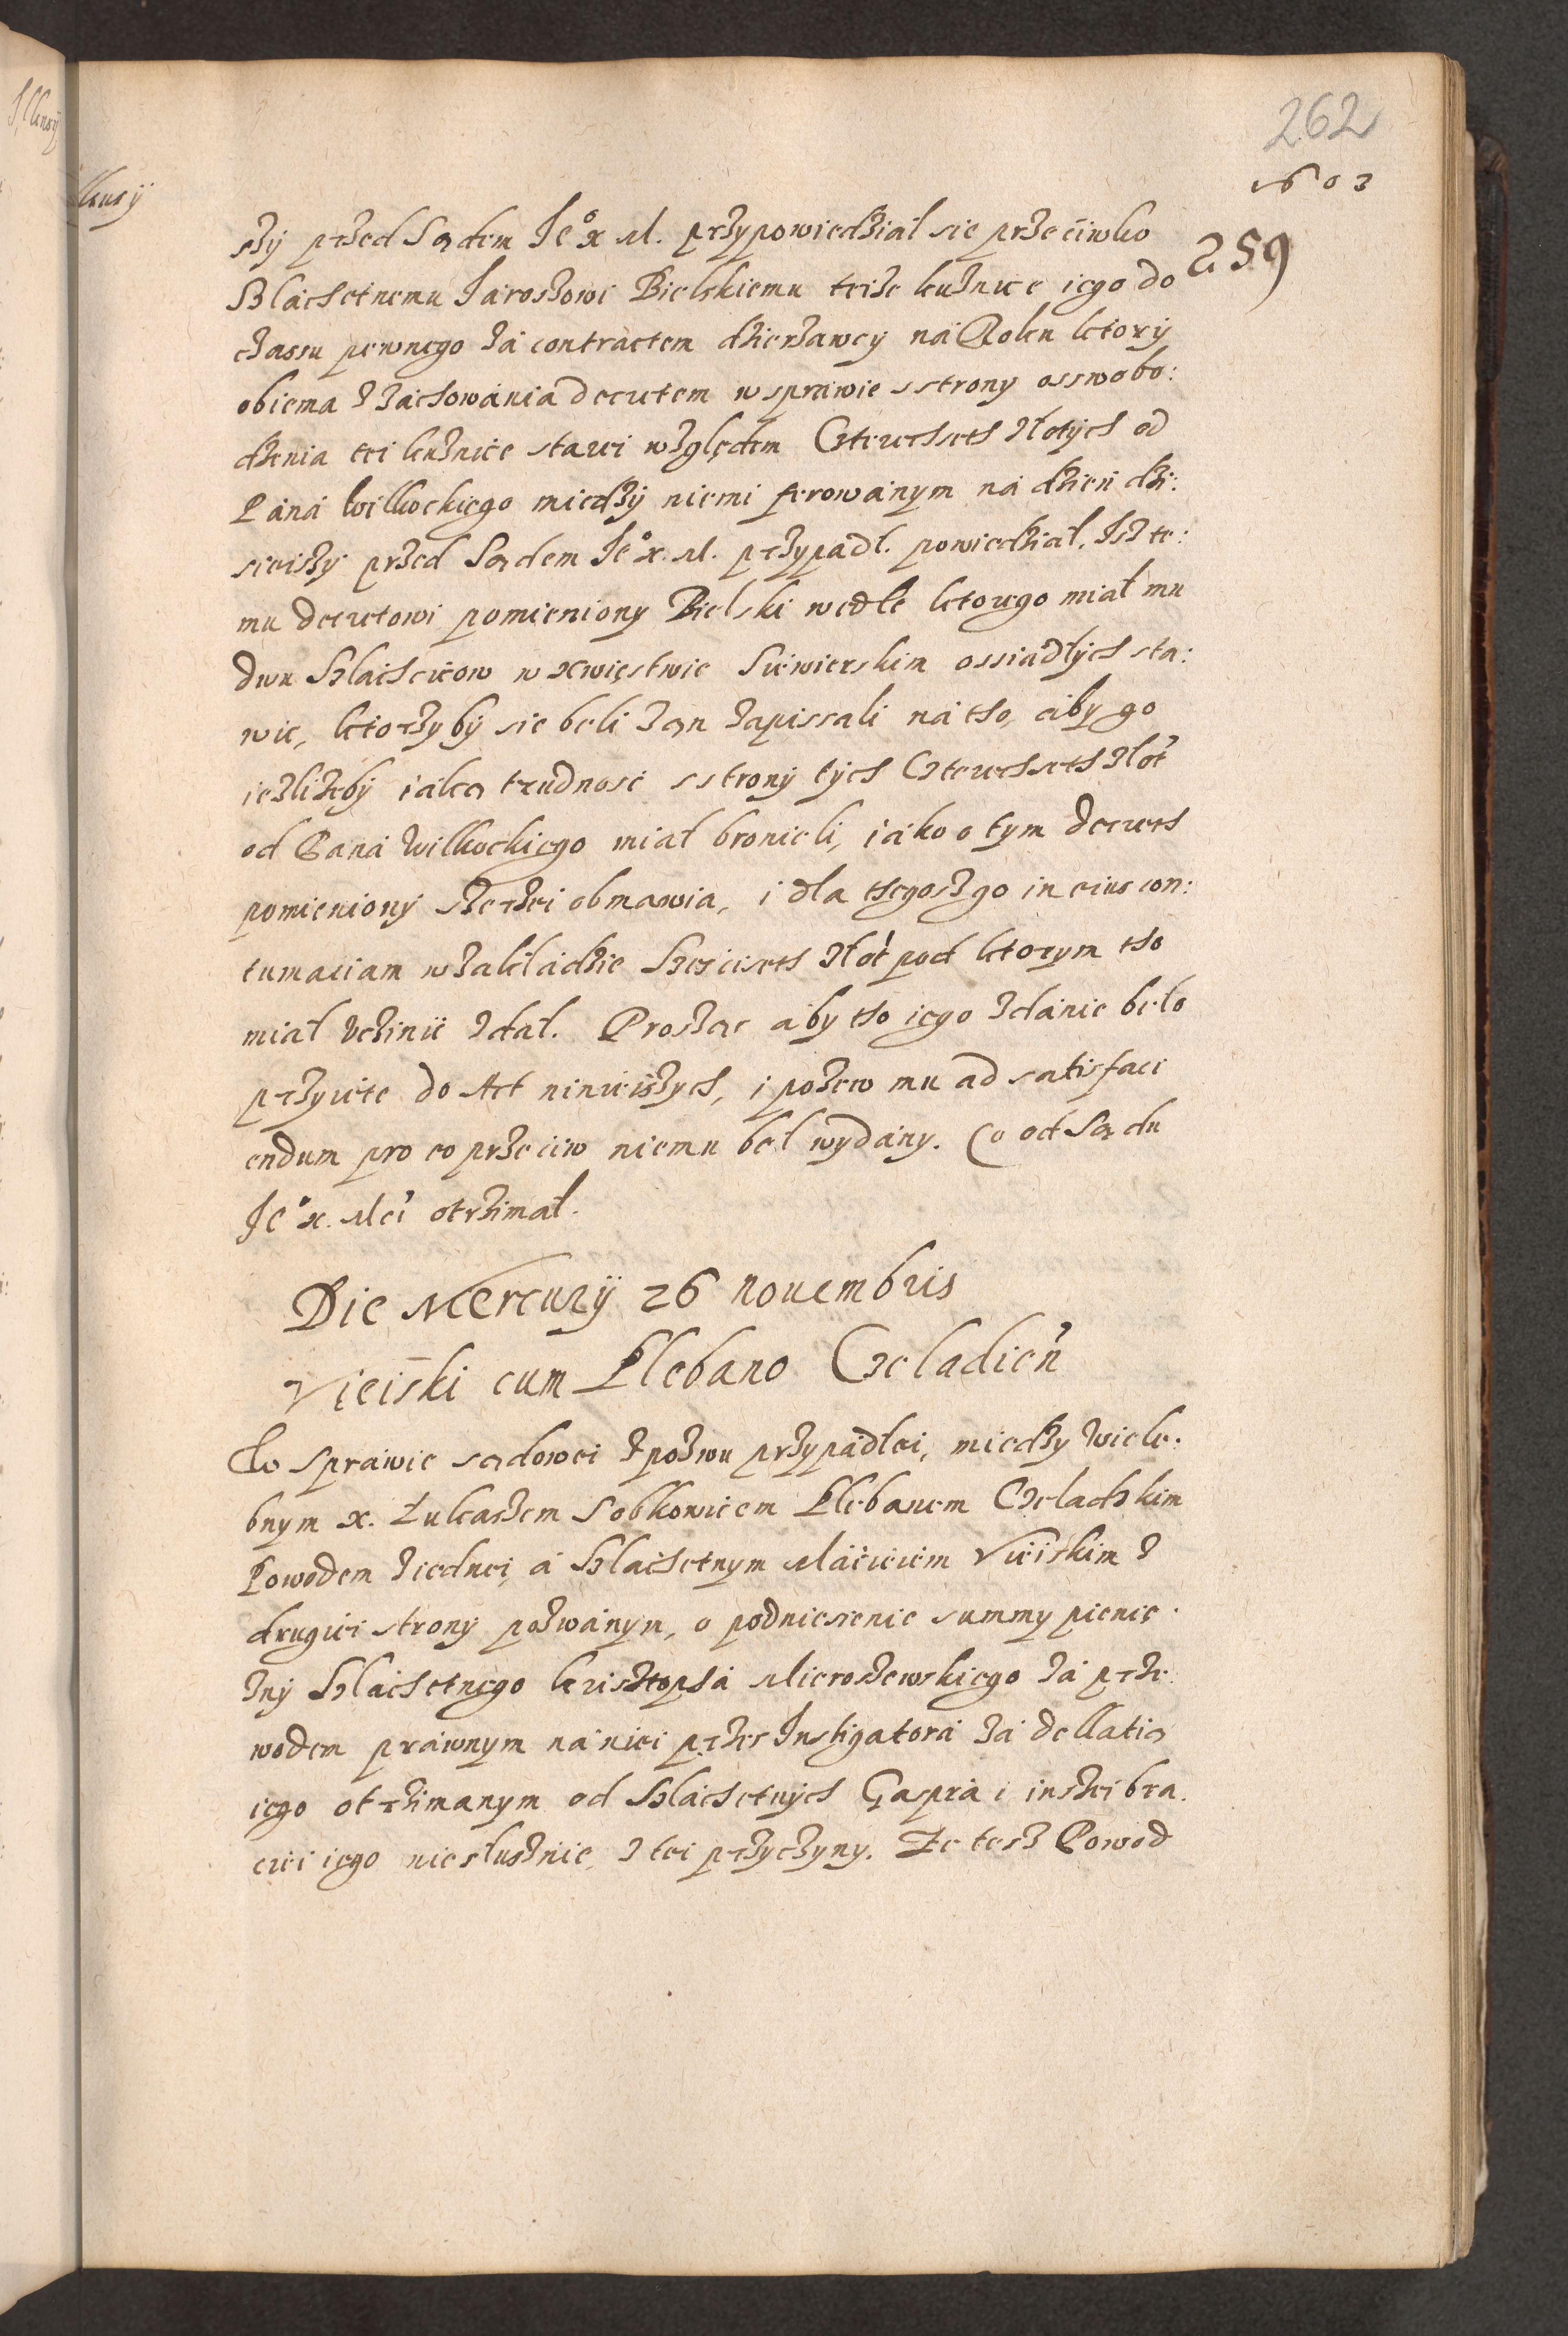 262
1603
259
szÿ przed Sądem Je° x M. przypowiedział sie przeciwko
Szlachetnemu Jaroszowi Bielskiemu teize kuznice iego do
czassu pewnego za contractem dzierzawcy na Roku ktorÿ
obiema z zachowania decretem w sprawie sstrony osswobo:
dzenia tei kuznice starei względem Czterechseth złotÿch od
Pana Wilkockiego miedzÿ niemi ferowanym na dzień dzi:
sieiszÿ przed Sądem Je° x. M. przypadł. powiedział, Isz te:
mu decretowi pomieniony Bielski wedle ktorego miał mu
dwu Szlachcicow w Xwięstwie Siewierskim ossiadłÿch sta:
wic, ktorzyby sie beli zan zapissali na tho, aby go
iezlizeby iaką trudnosc sstronÿ tÿch Czterechseth złot
od Pana Wilkockiego miał bronieli, iako o tym decreth
pomieniony szerzei obmawia, i dla thegosz go in eius con:
tumaciam w zakładzie Szesciseth złot pod ktorym tho
miał vczinic zdał. Prosząc aby tho iego zdanie beło
przyięte do Act ninieiszych, i pozew mu ad satisfaci
endum pro eo przeciw niemu beł wydany. Co od Sądu
Je° x. Mci otrzimał.
Die Mercurÿ 26 nouembris
Vieiski cum Plebano Czeladień
W sprawie sądowei z pozwu przypadłei, miedzy Wiele:
bnym x. Łukaszem Sobkowicem Plebanem Czeladzkim
Powodem z iednei, a Szlachetnym Macieiem Vieiskim z
drugiei stronÿ pozwanym, o podniesienie summy pienię:
znÿ Szlachetnego Krisztopha Mieroszewskiego za prze:
wodem prawnym na niei przes Instigatora za dellatią
iego otrzimanym od Szlachetnÿch Gaspra i inszei bra:
ciei iego niesłusznie, z tei przyczyny. Ze tesz Powod